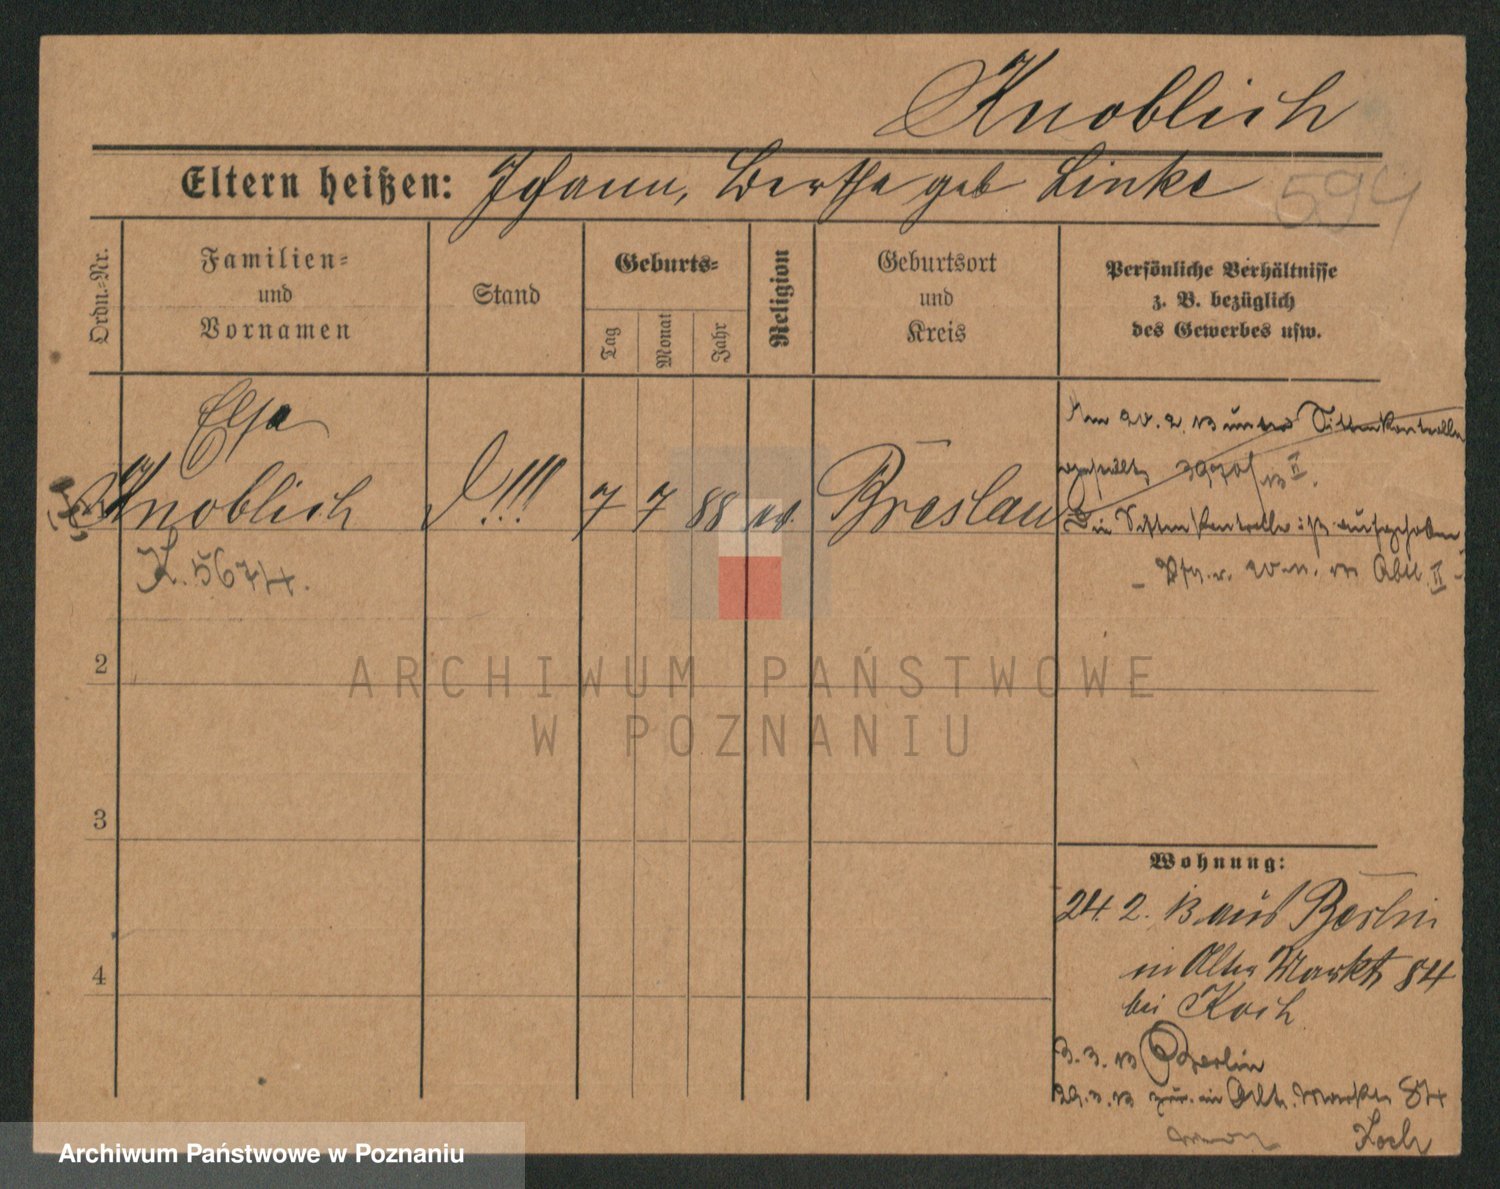 Knoblich
Eltern heißen: Johann, Bertha geb Linke
594
Ordn.=Nr.
Familien=
und
Vornamen
Stand
Geburts=
Tag
Monat
Jahr
Religion
Geburtsort
und
Kreis
Persönliche Verhältnisse
z. B. bezüglich
des Gewerbes usw.
Elsa
Knoblich
7 7 88
Breslau
K. 5674.
Am 20. 2. 13 unter Sittenkontrolle
gestellt 3970/13 II.
Die Sittenkontrolle ist aufgehoben
Abtl. II
2
3
4
Wohnung:
24. 2. 13 aus Berlin
in Alter Markt 84
bei Koch
3. 3. 13 Berlin
29. 3. 13 zur. in Alt. Markt 84
Koch
ARCHIWUM PAŃSTWOWE
W POZNANIU
Archiwum Państwowe w Poznaniu